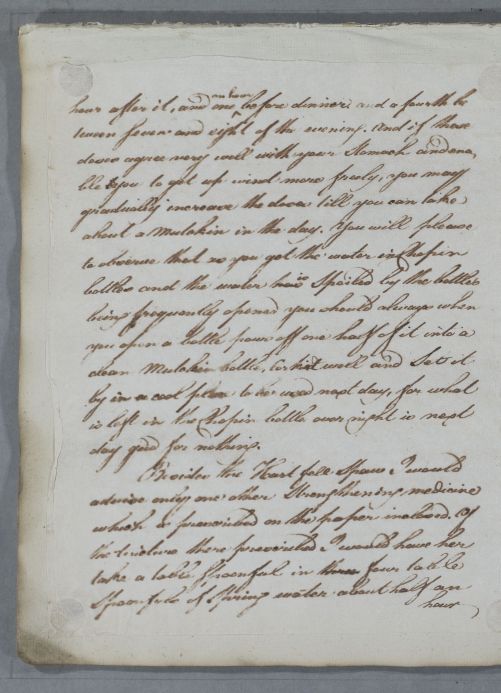 hour after it, and one an hour before dinner and a fourth be
tween seven and eight of the evening. And if these
doses agree very well with your Stomach and ena,
ble you to get up wind more freely, you may
gradually increase the doses till you can take
about a Mutchkin in the day. You will please
to observe that as you get the water in Chopin
bottles and the water is Spoiled by the bottles
being frequently opened you should always when
you open a bottle pour off one half of it into a
clean Mutchkin bottle, Cork it well and Set it
by in a cool place to be used next day, for what
is left in the Chopin bottle over night is next
day good for nothing.
Besides the Hartfell Spaw I would
advise only one other Strengthening medicine
which is prescribed on the paper inclosed. Of
the tincture there prescribed I would have her
take a table Spoonful in three four table
Spoonfuls of Spring water about half an
hour